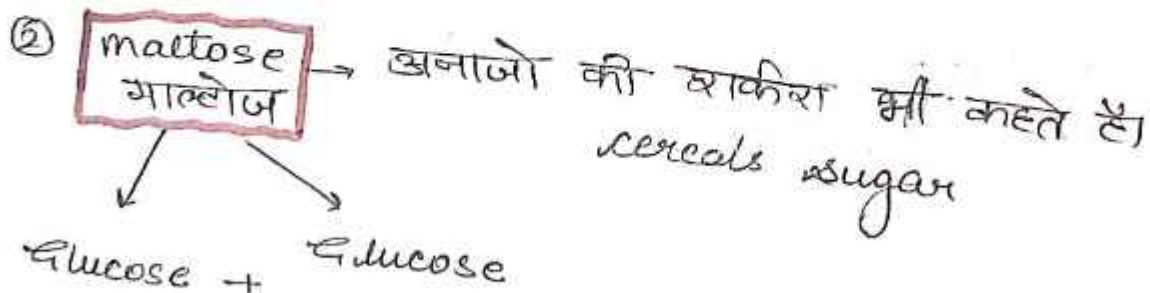 ② maltose → अनाजो की शर्करा भी कहते है।
माल्टोज
cereals sugar
Glucose + Glucose